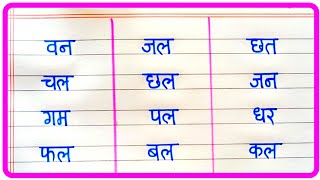 वन जल छत
चल छल जन
गम पल धर
फल बल कल